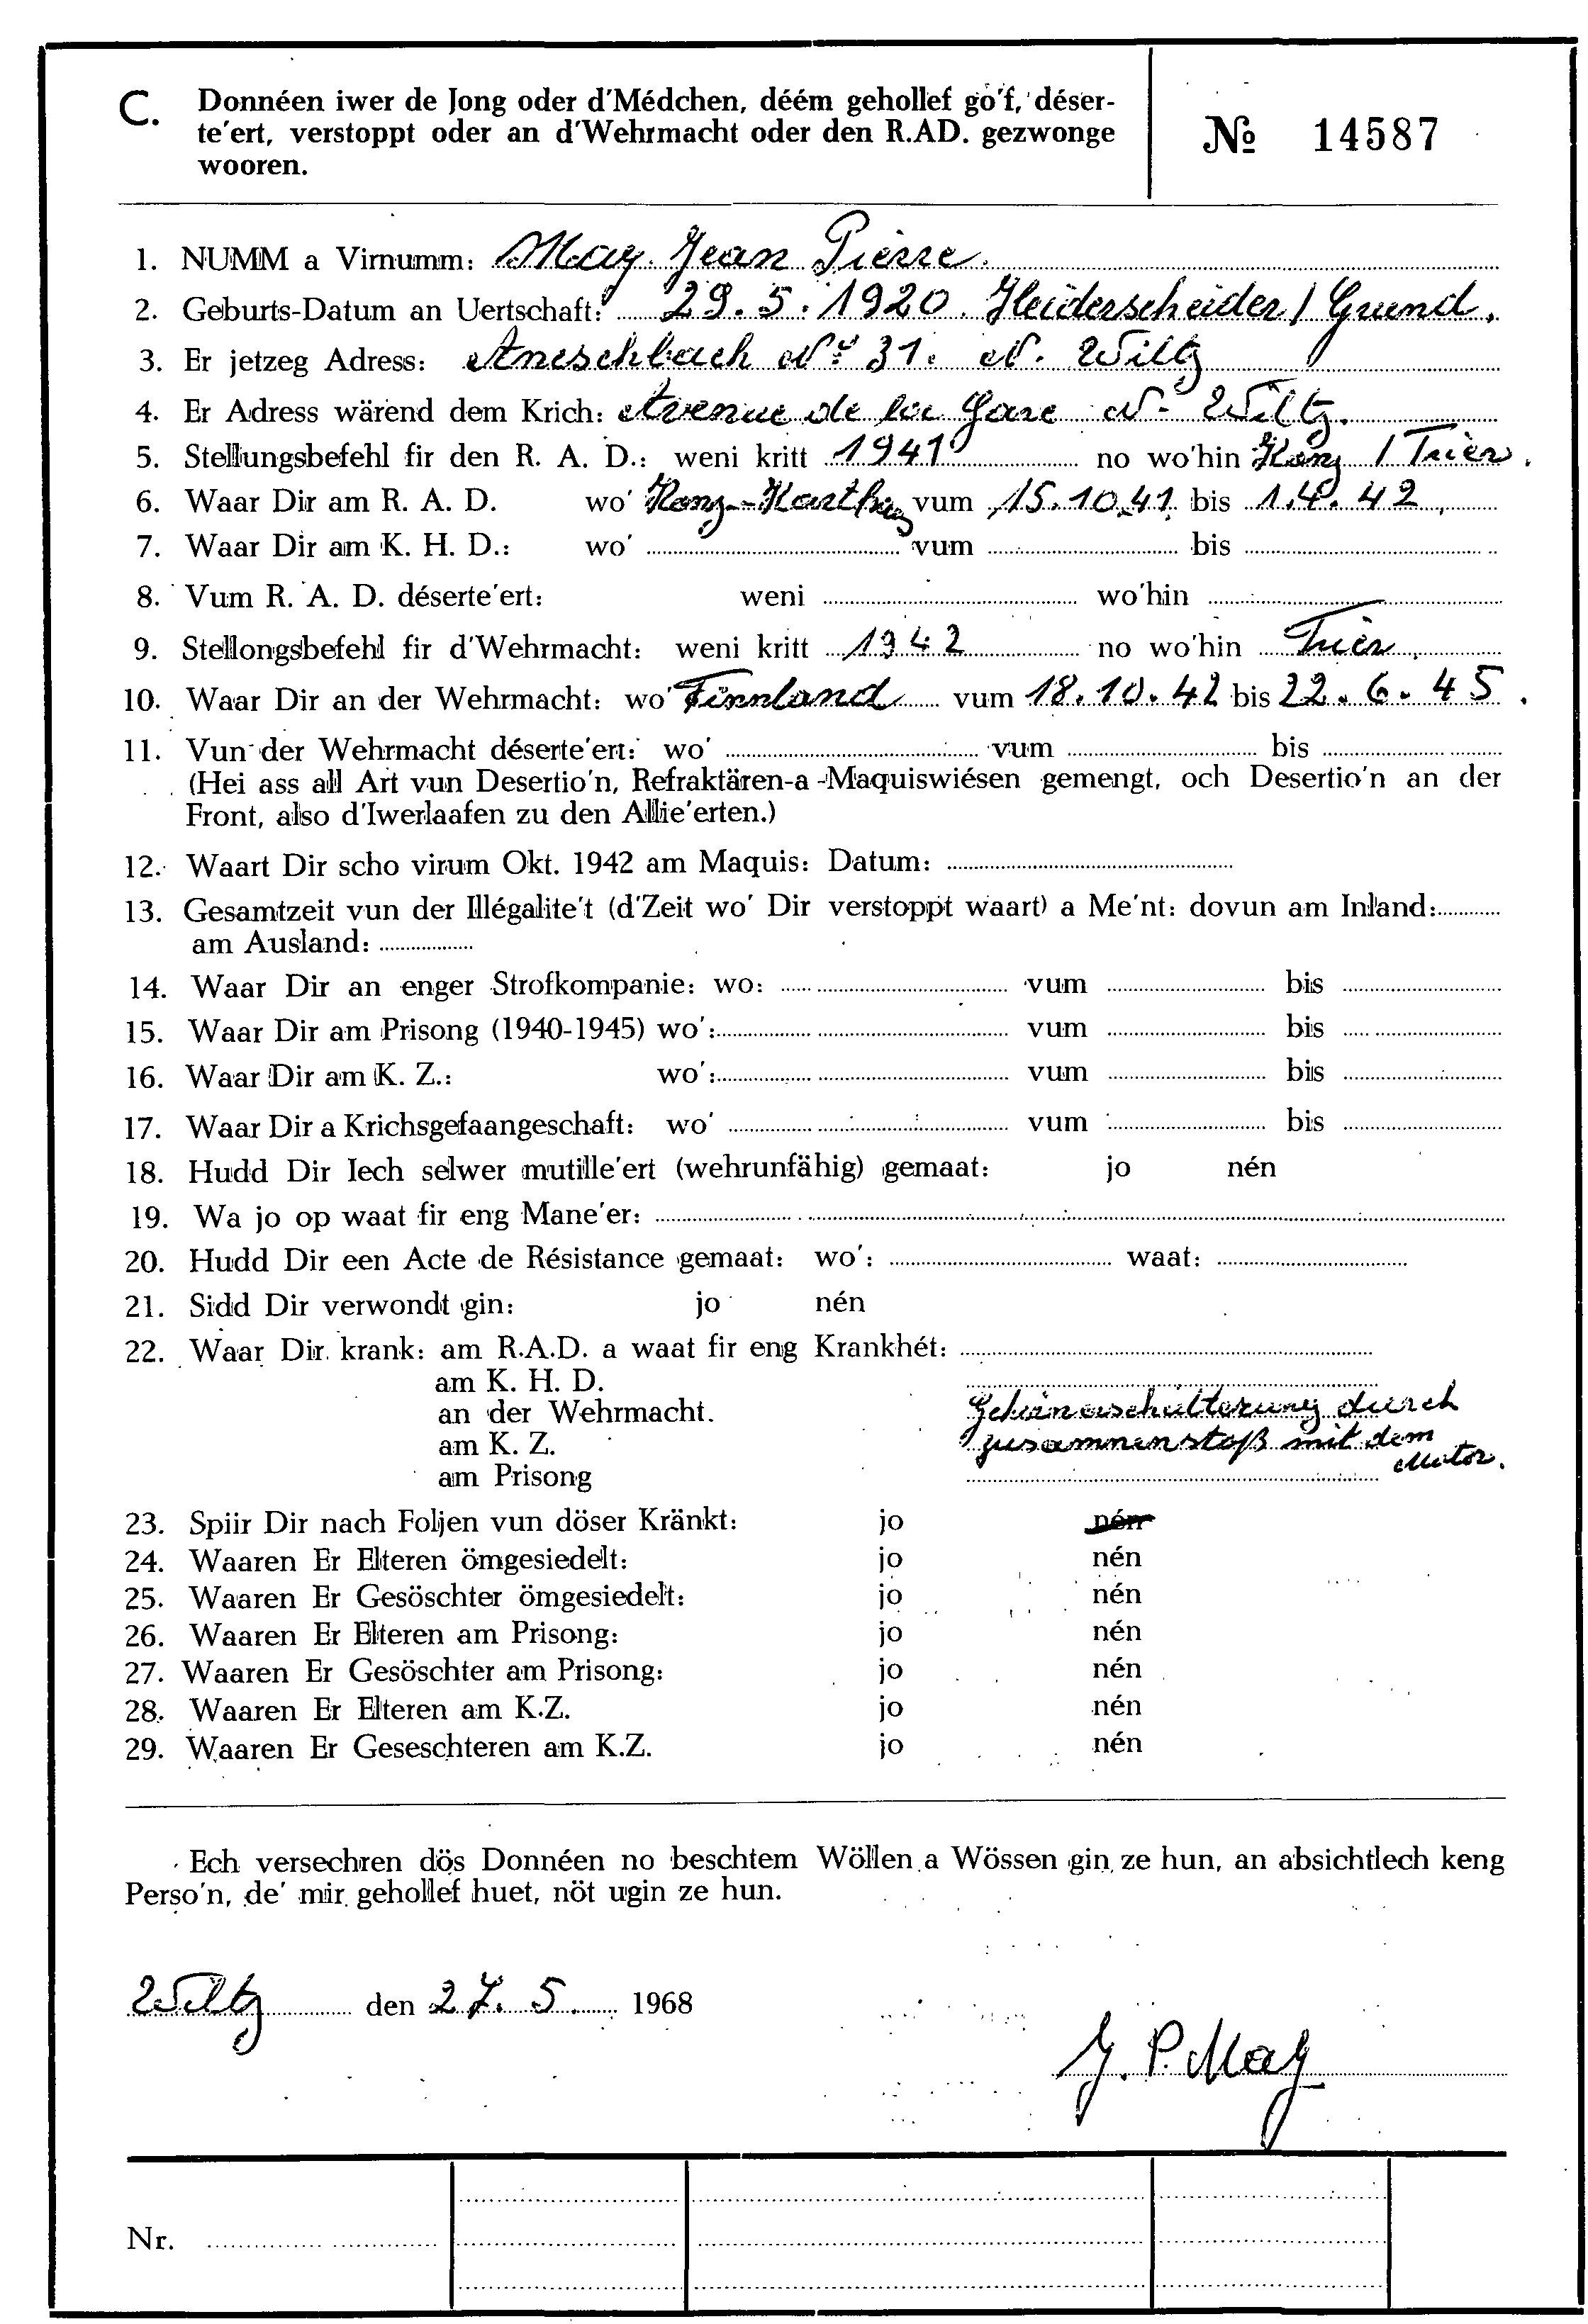 C. Donnéen iwer de Jong oder d'Médchen, déém gehollef go'f, déser-
te'ert, verstoppt oder an d'Wehrmacht oder den R.AD. gezwonge
wooren.
№ 14587
1. NUMM a Virnumm: May Jean Pierre.
2. Geburts-Datum an Uertschaft: 29.5.1920. Heiderscheider/Grund.
3. Er jetzeg Adress: Aneschbach No 31. N. Wiltz
4. Er Adress wärend dem Krich: Avenue de la Gare N. Wiltz.
5. Stellungsbefehl fir den R. A. D.: weni kritt 1941 no wo'hin Konz / Trier.
6. Waar Dir am R. A. D. wo' Konz-Karthaus vum 15.10.41 bis 1.4.42
7. Waar Dir am K. H. D.: wo' vum bis
8. Vum R. A. D. déserte'ert: weni wo'hin
9. Stellongsbefehl fir d'Wehrmacht: weni kritt 1942 no wo'hin Trier.
10. Waar Dir an der Wehrmacht: wo' Finnland vum 18.10.42 bis 22.6.45.
11. Vun der Wehrmacht déserte'ert: wo' vum bis
(Hei ass all Art vun Desertio'n, Refraktären-a-Maquiswiésen gemengt, och Desertio'n an der
Front, also d'Iwerlaafen zu den Allie'erten.)
12. Waart Dir scho virum Okt. 1942 am Maquis: Datum:
13. Gesamtzeit vun der Illégalite't (d'Zeit wo' Dir verstoppt waart) a Me'nt: dovun am Inland:
am Ausland:
14. Waar Dir an enger Strofkompanie: wo: vum bis
15. Waar Dir am Prisong (1940-1945) wo': vum bis
16. Waar Dir am K. Z.: wo': vum bis
17. Waar Dir a Krichsgefaangeschaft: wo' vum bis
18. Hudd Dir Iech selwer mutille'ert (wehrunfähig) gemaat: jo nén
19. Wa jo op waat fir eng Mane'er:
20. Hudd Dir een Acte de Résistance gemaat: wo': waat:
21. Sidd Dir verwondt gin: jo nén
22. Waar Dir krank: am R.A.D. a waat fir eng Krankhét:
am K. H. D.
an der Wehrmacht. Gehirnerschütterung durch
am K. Z. zusammenstoß mit dem
Motor.
am Prisong
23. Spiir Dir nach Foljen vun döser Kränkt: jo nén
24. Waaren Er Elteren ömgesiedelt: jo nén
25. Waaren Er Gesöschter ömgesiedelt: jo nén
26. Waaren Er Elteren am Prisong: jo nén
27. Waaren Er Gesöschter am Prisong: jo nén
28. Waaren Er Elteren am K.Z. jo nén
29. Waaren Er Geseschteren am K.Z. jo nén
Ech versechren dös Donnéen no beschtem Wöllen a Wössen gin ze hun, an absichtlech keng
Perso'n, de' mir gehollef huet, nöt ugin ze hun.
Wiltz den 27.5. 1968
J. P. May
Nr.